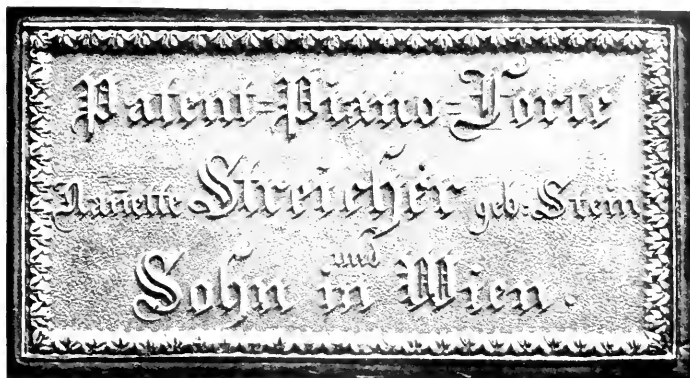 Patent=Piano=Forte
Nañette Streicher geb: Stein
und
Sohn in Wien.